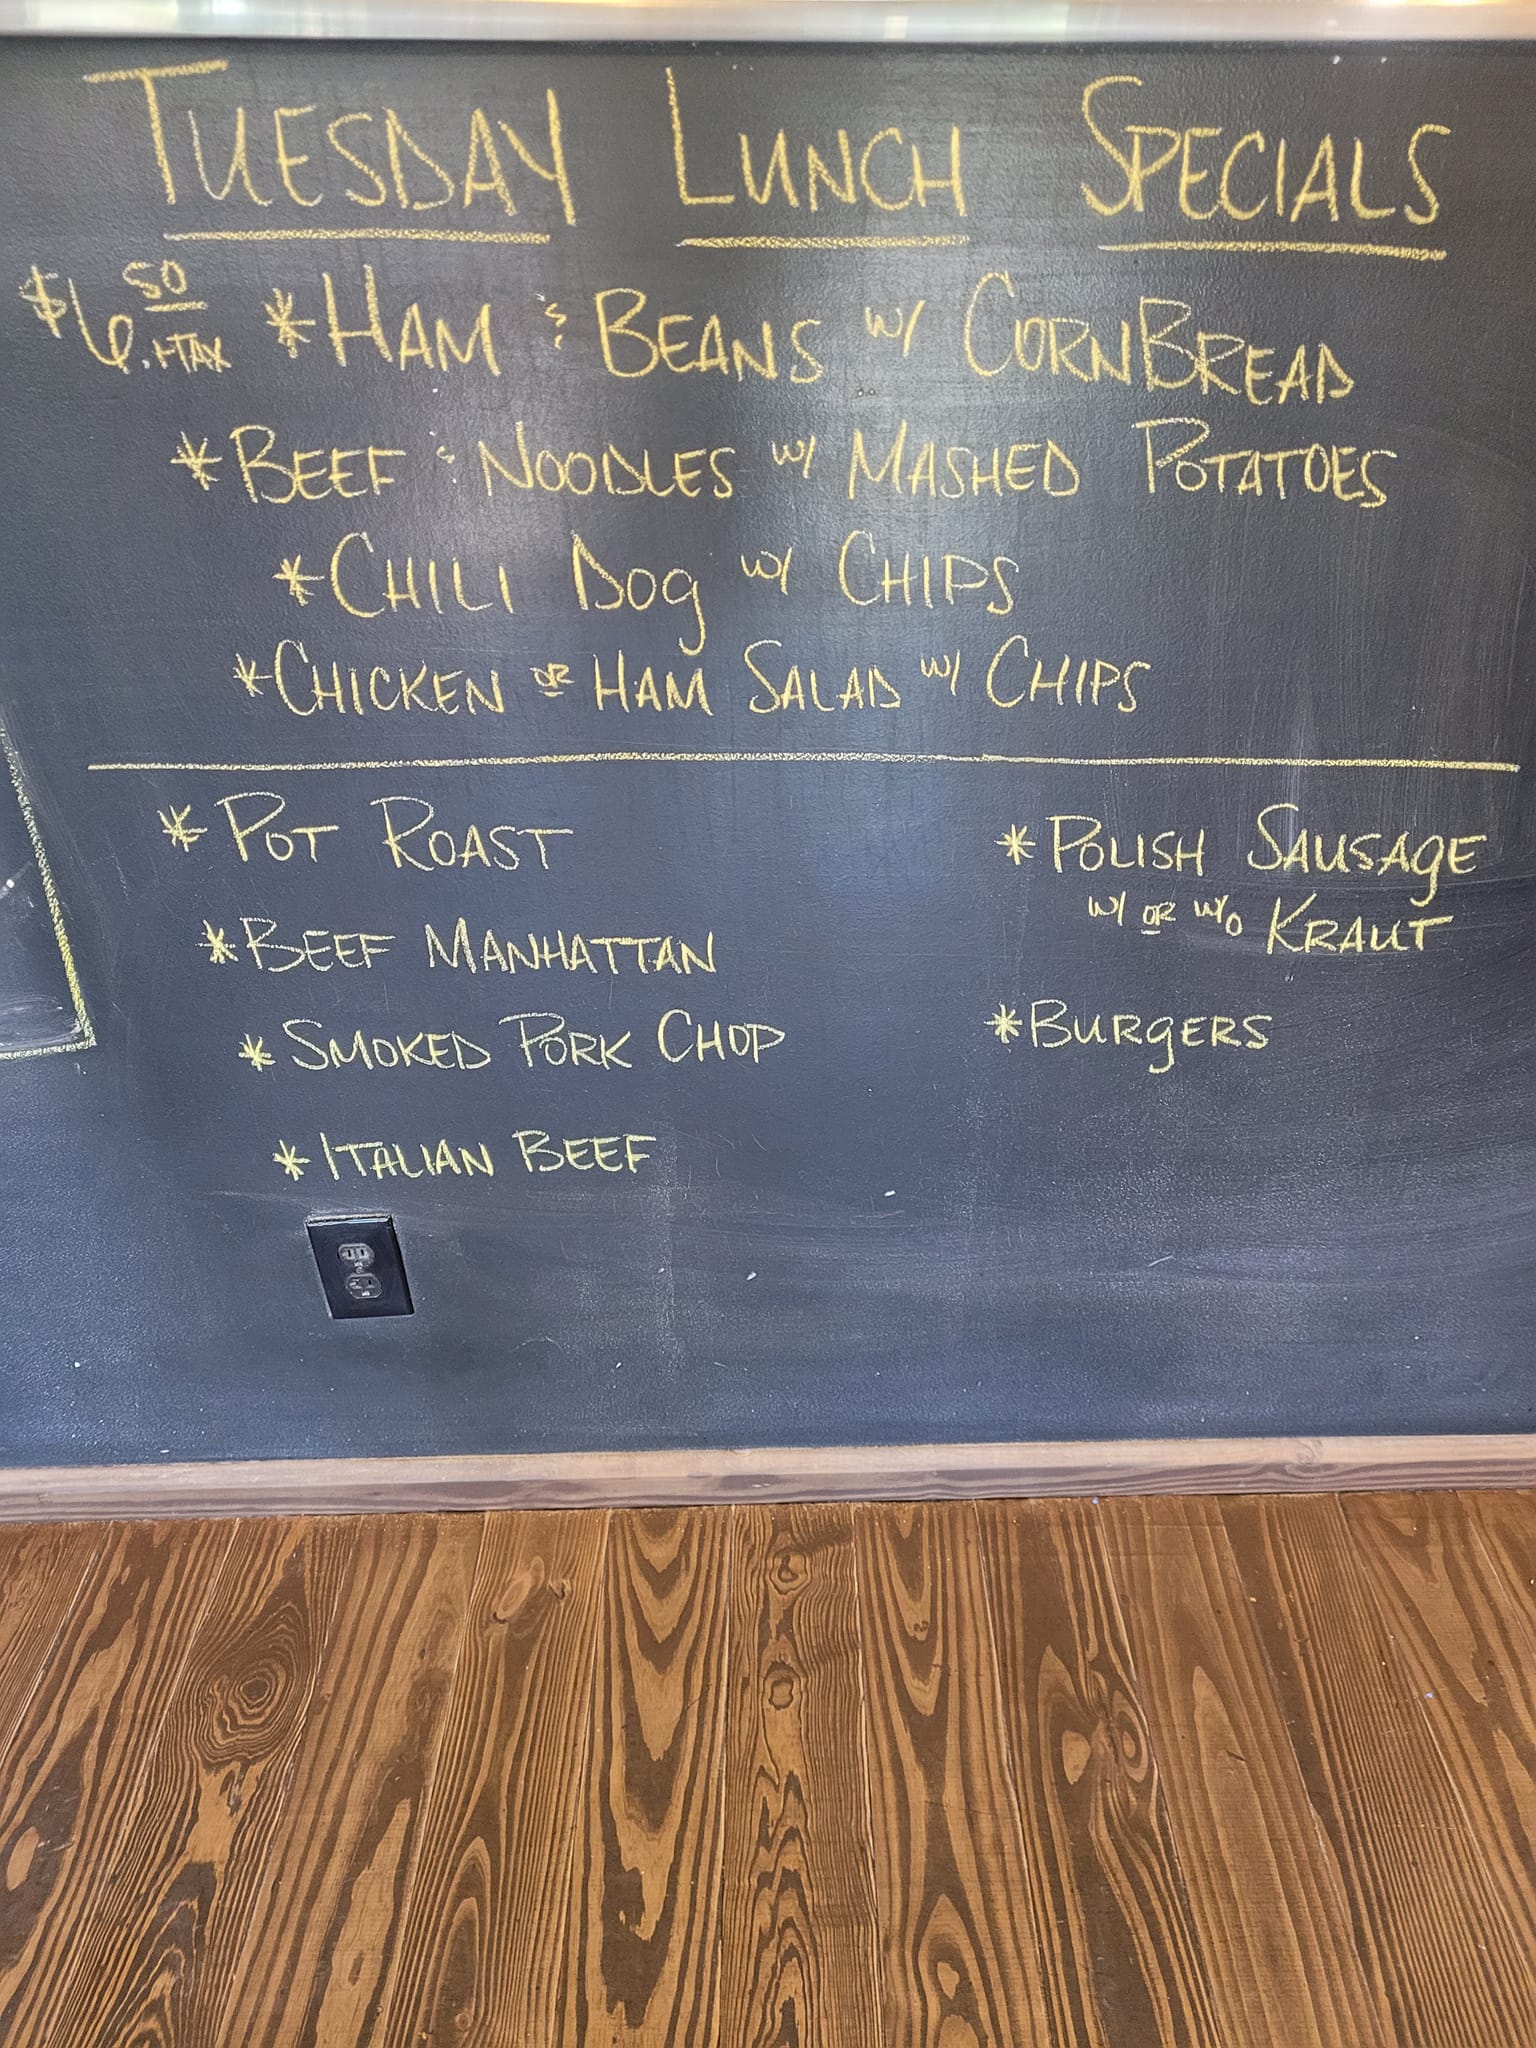 TUESDAY LUNCH SPECIALS
$6.50 +TAX *HAM & BEANS W/ CORNBREAD
*BEEF & NOODLES W/ MASHED POTATOES
*CHILI DOG W/ CHIPS
*CHICKEN OR HAM SALAD W/ CHIPS
*POT ROAST
*BEEF MANHATTAN
*SMOKED PORK CHOP
*ITALIAN BEEF
*POLISH SAUSAGE
W/ OR W/O KRAUT
*BURGERS